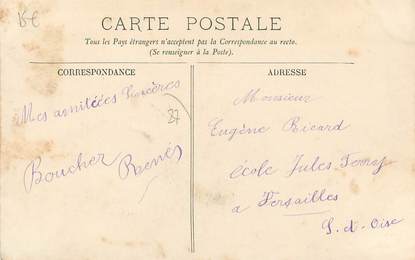 15€
CARTE POSTALE
Tous les Pays étrangers n'acceptent pas la Correspondance au recto.
(Se renseigner à la Poste).
CORRESPONDANCE
Mes amitiées Sincères
Boucher René
87
ADRESSE
Monsieur
Eugène Ricard
école Jules Ferry
a Versailles
S.-et-Oise